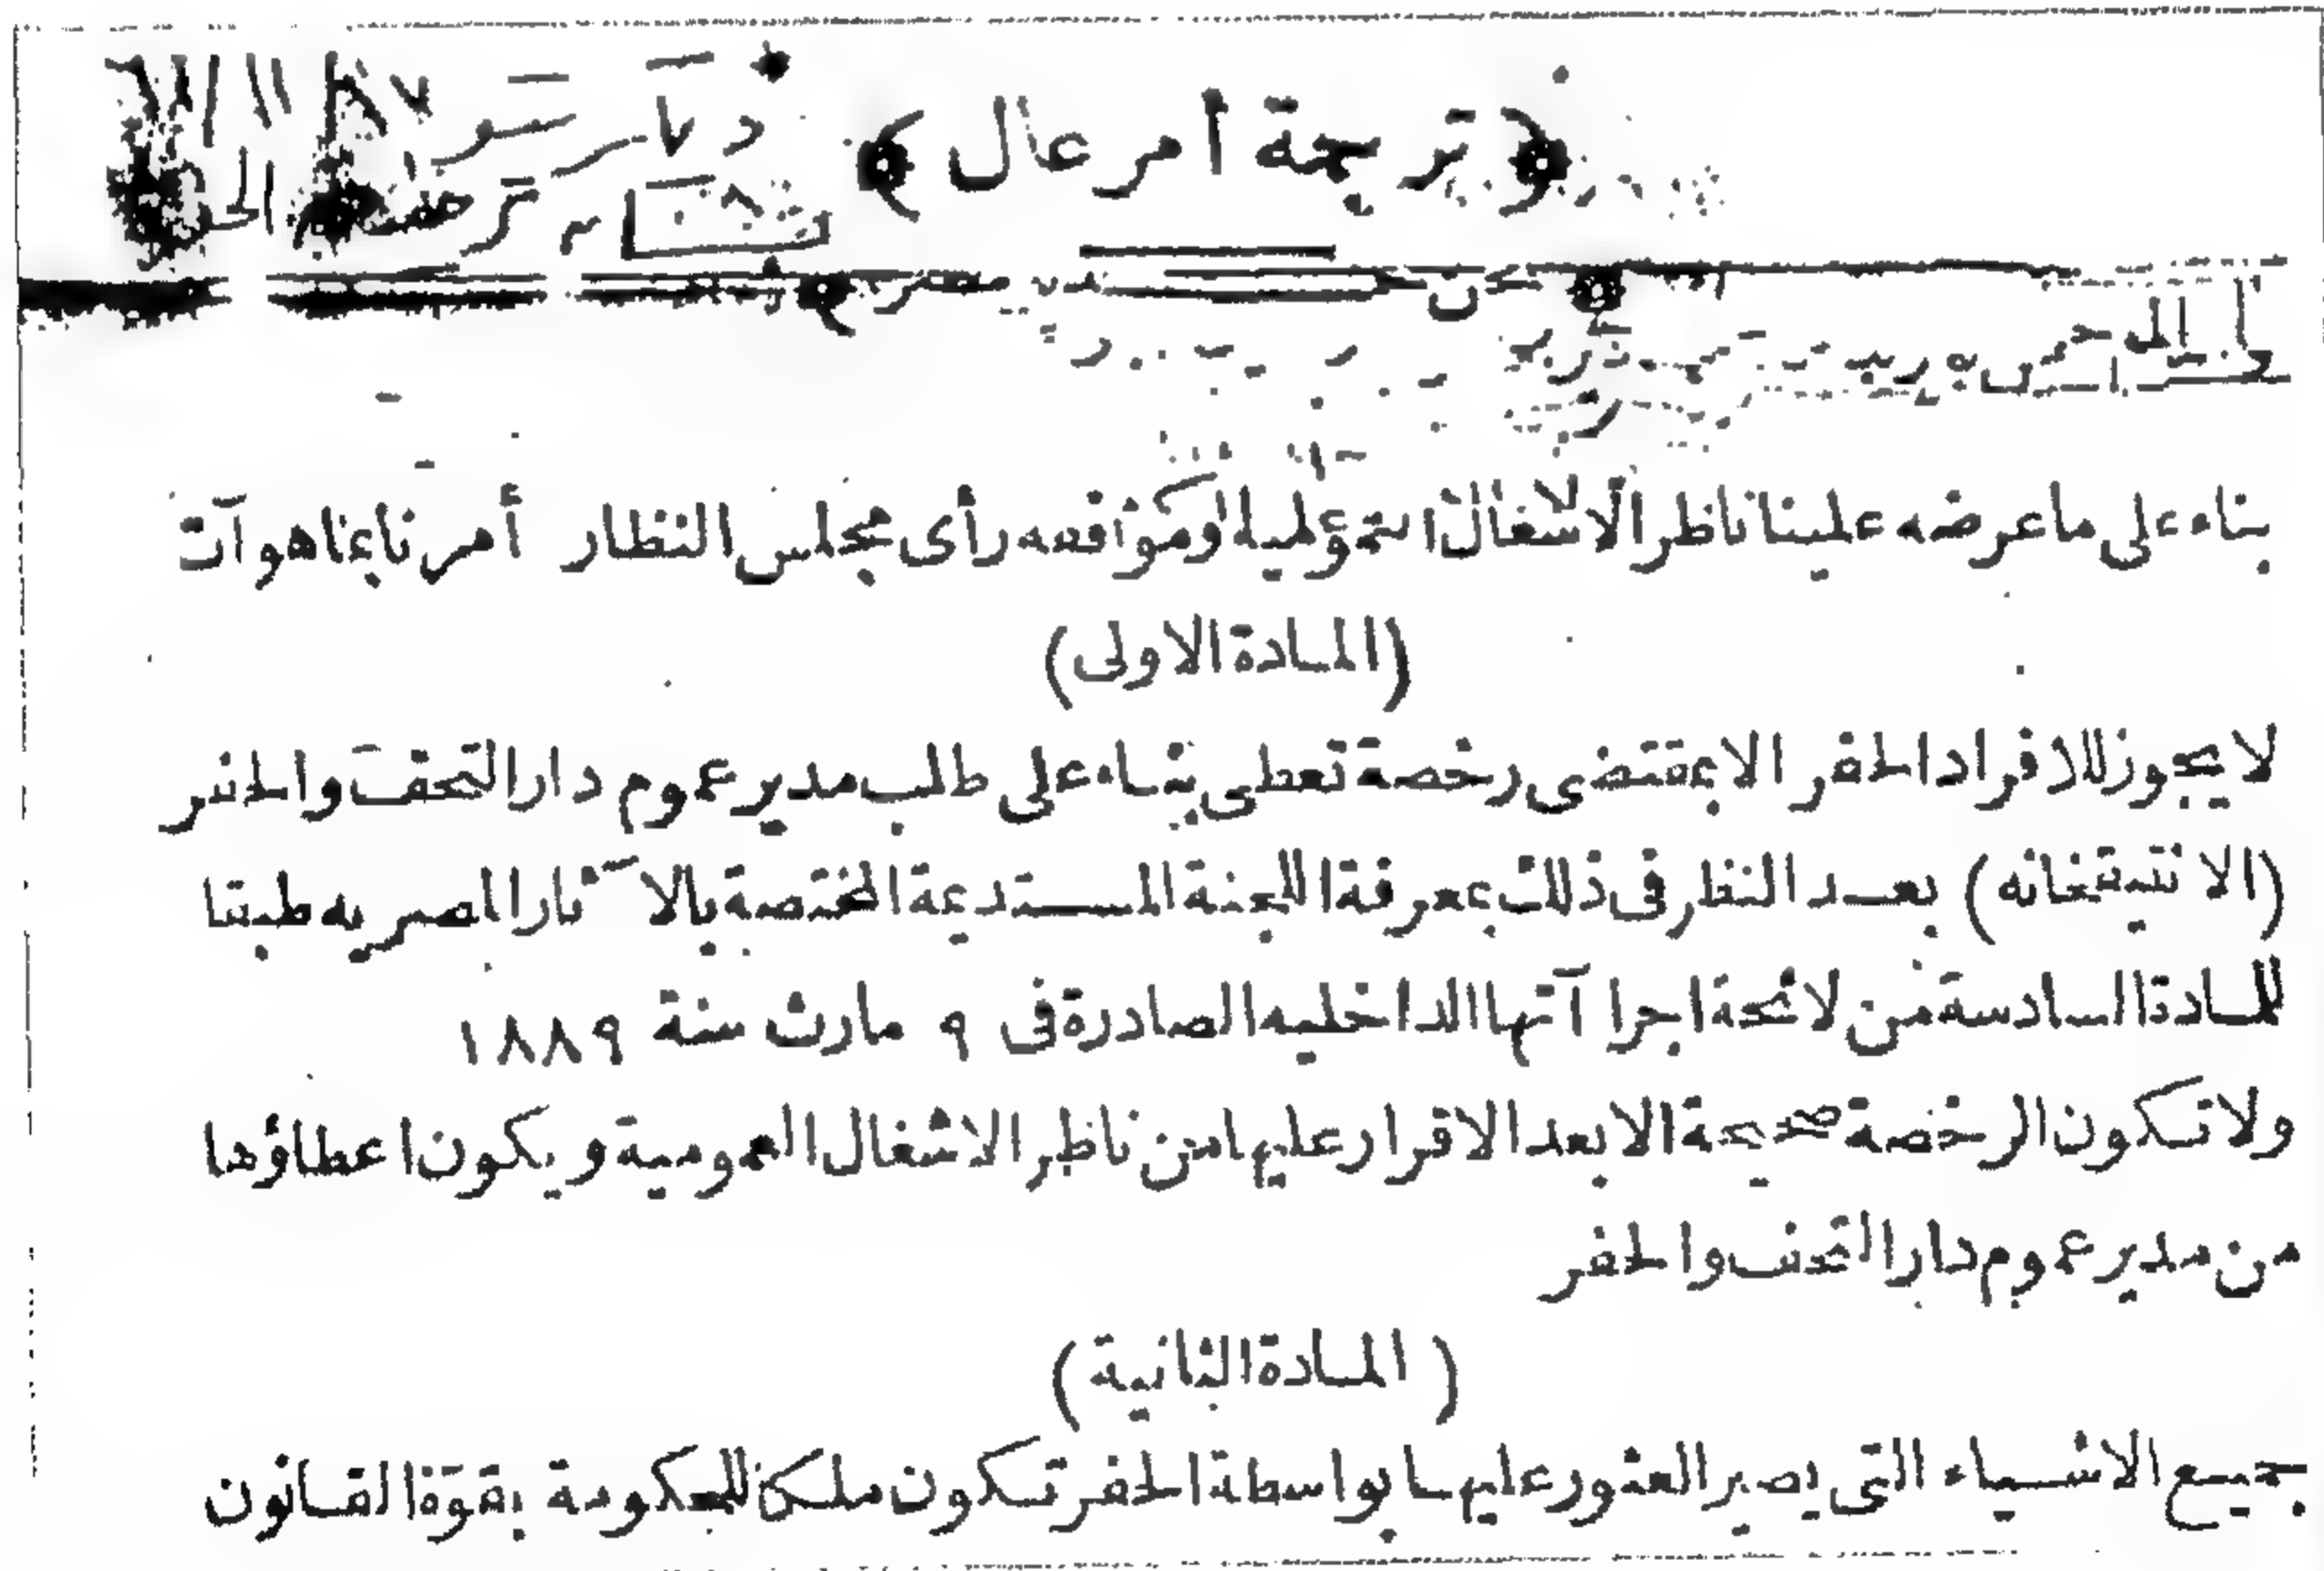 ﴿ ترجمة أمر عال ﴾
نحن خديو مصر
بناء على ما عرضه علينا ناظر الاشغال العمومية وموافقة رأى مجلس النظار أمرنا بما هو آت
(المادة الاولى)
لا يجوز للافراد الحفر الا بمقتضى رخصة تعطى بناء على طلب مدير عموم دار التحف والحفر
(الانتيقخانه) بعد النظر فى ذلك بمعرفة اللجنة المستديمة المختصة بالآثار المصريه طبقا
للمادة السادسة من لائحة اجرا آتها الداخليه الصادرة فى ٩ مارث سنة ١٨٨٩
ولا تكون الرخصة صحيحة الا بعد الاقرار عليها من ناظر الاشغال العمومية ويكون اعطاؤها
من مدير عموم دار التحف والحفر
(المادة الثانية)
جميع الاشياء التى يصير العثور عليها بواسطة الحفر تكون ملكا للحكومة بقوة القانون